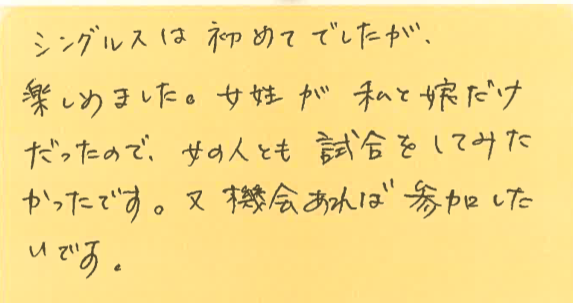 シングルスは初めてでしたが、
楽しめました。女姓が私と嫁だけ
だったので、女の人とも試合をしてみた
かったです。又機会あれば参加した
いです。